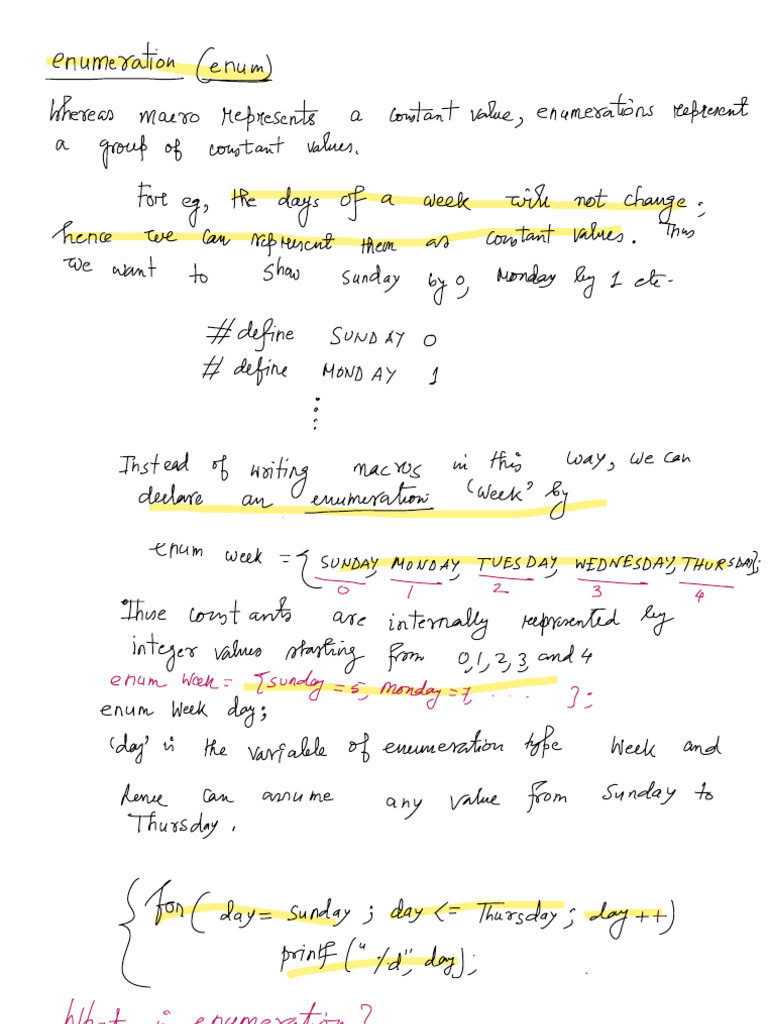 enumeration (enum)
Whereas macro represents a constant value, enumerations represent
a group of constant values.
For eg, the days of a week will not change;
hence we can represent them as constant values. Thus
we want to show Sunday by 0, Monday by 1 etc-
#define SUNDAY 0
# define MONDAY 1
Instead of writing macros in this way, we can
declare an enumeration 'Week' by
enum week = { SUNDAY, MONDAY, TUESDAY, WEDNESDAY, THURSDAY};
0 1 2 3 4
These constants are internally represented by
integer values starting from 0,1,2,3, and 4
enum Week = {sunday = 5, Monday = 7, . . . . };
enum Week day;
'day' is the variable of enumeration type Week and
hence can assume any value from Sunday to
Thursday.
for( day = Sunday ; day <= Thursday ; day ++)
printf ("%d", day);
What is enumeration?